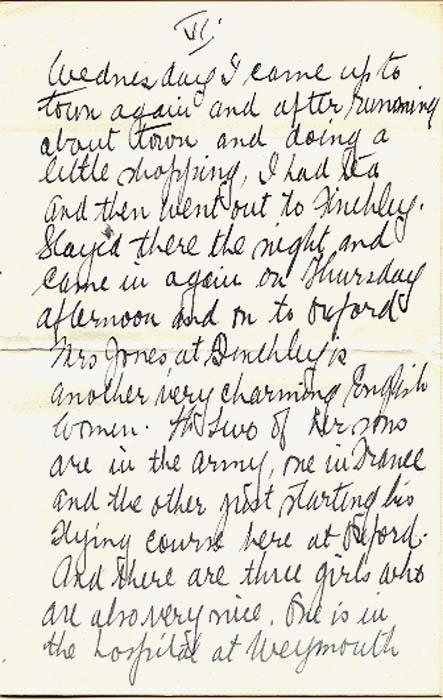 VI.
Wednesday I came up to
town again and after running
about town and doing a
little shopping, I had tea
and then went out to Finchley.
Stayed there the night and
came in again on Thursday
afternoon and on to Oxford
Mrs Jones at Finchley is
another very charming English
women. Two of her sons
are in the army, one in France
and the other just starting his
flying course here at Oxford.
And there are three girls who
are also very nice. One is in
the hospital at Weymouth